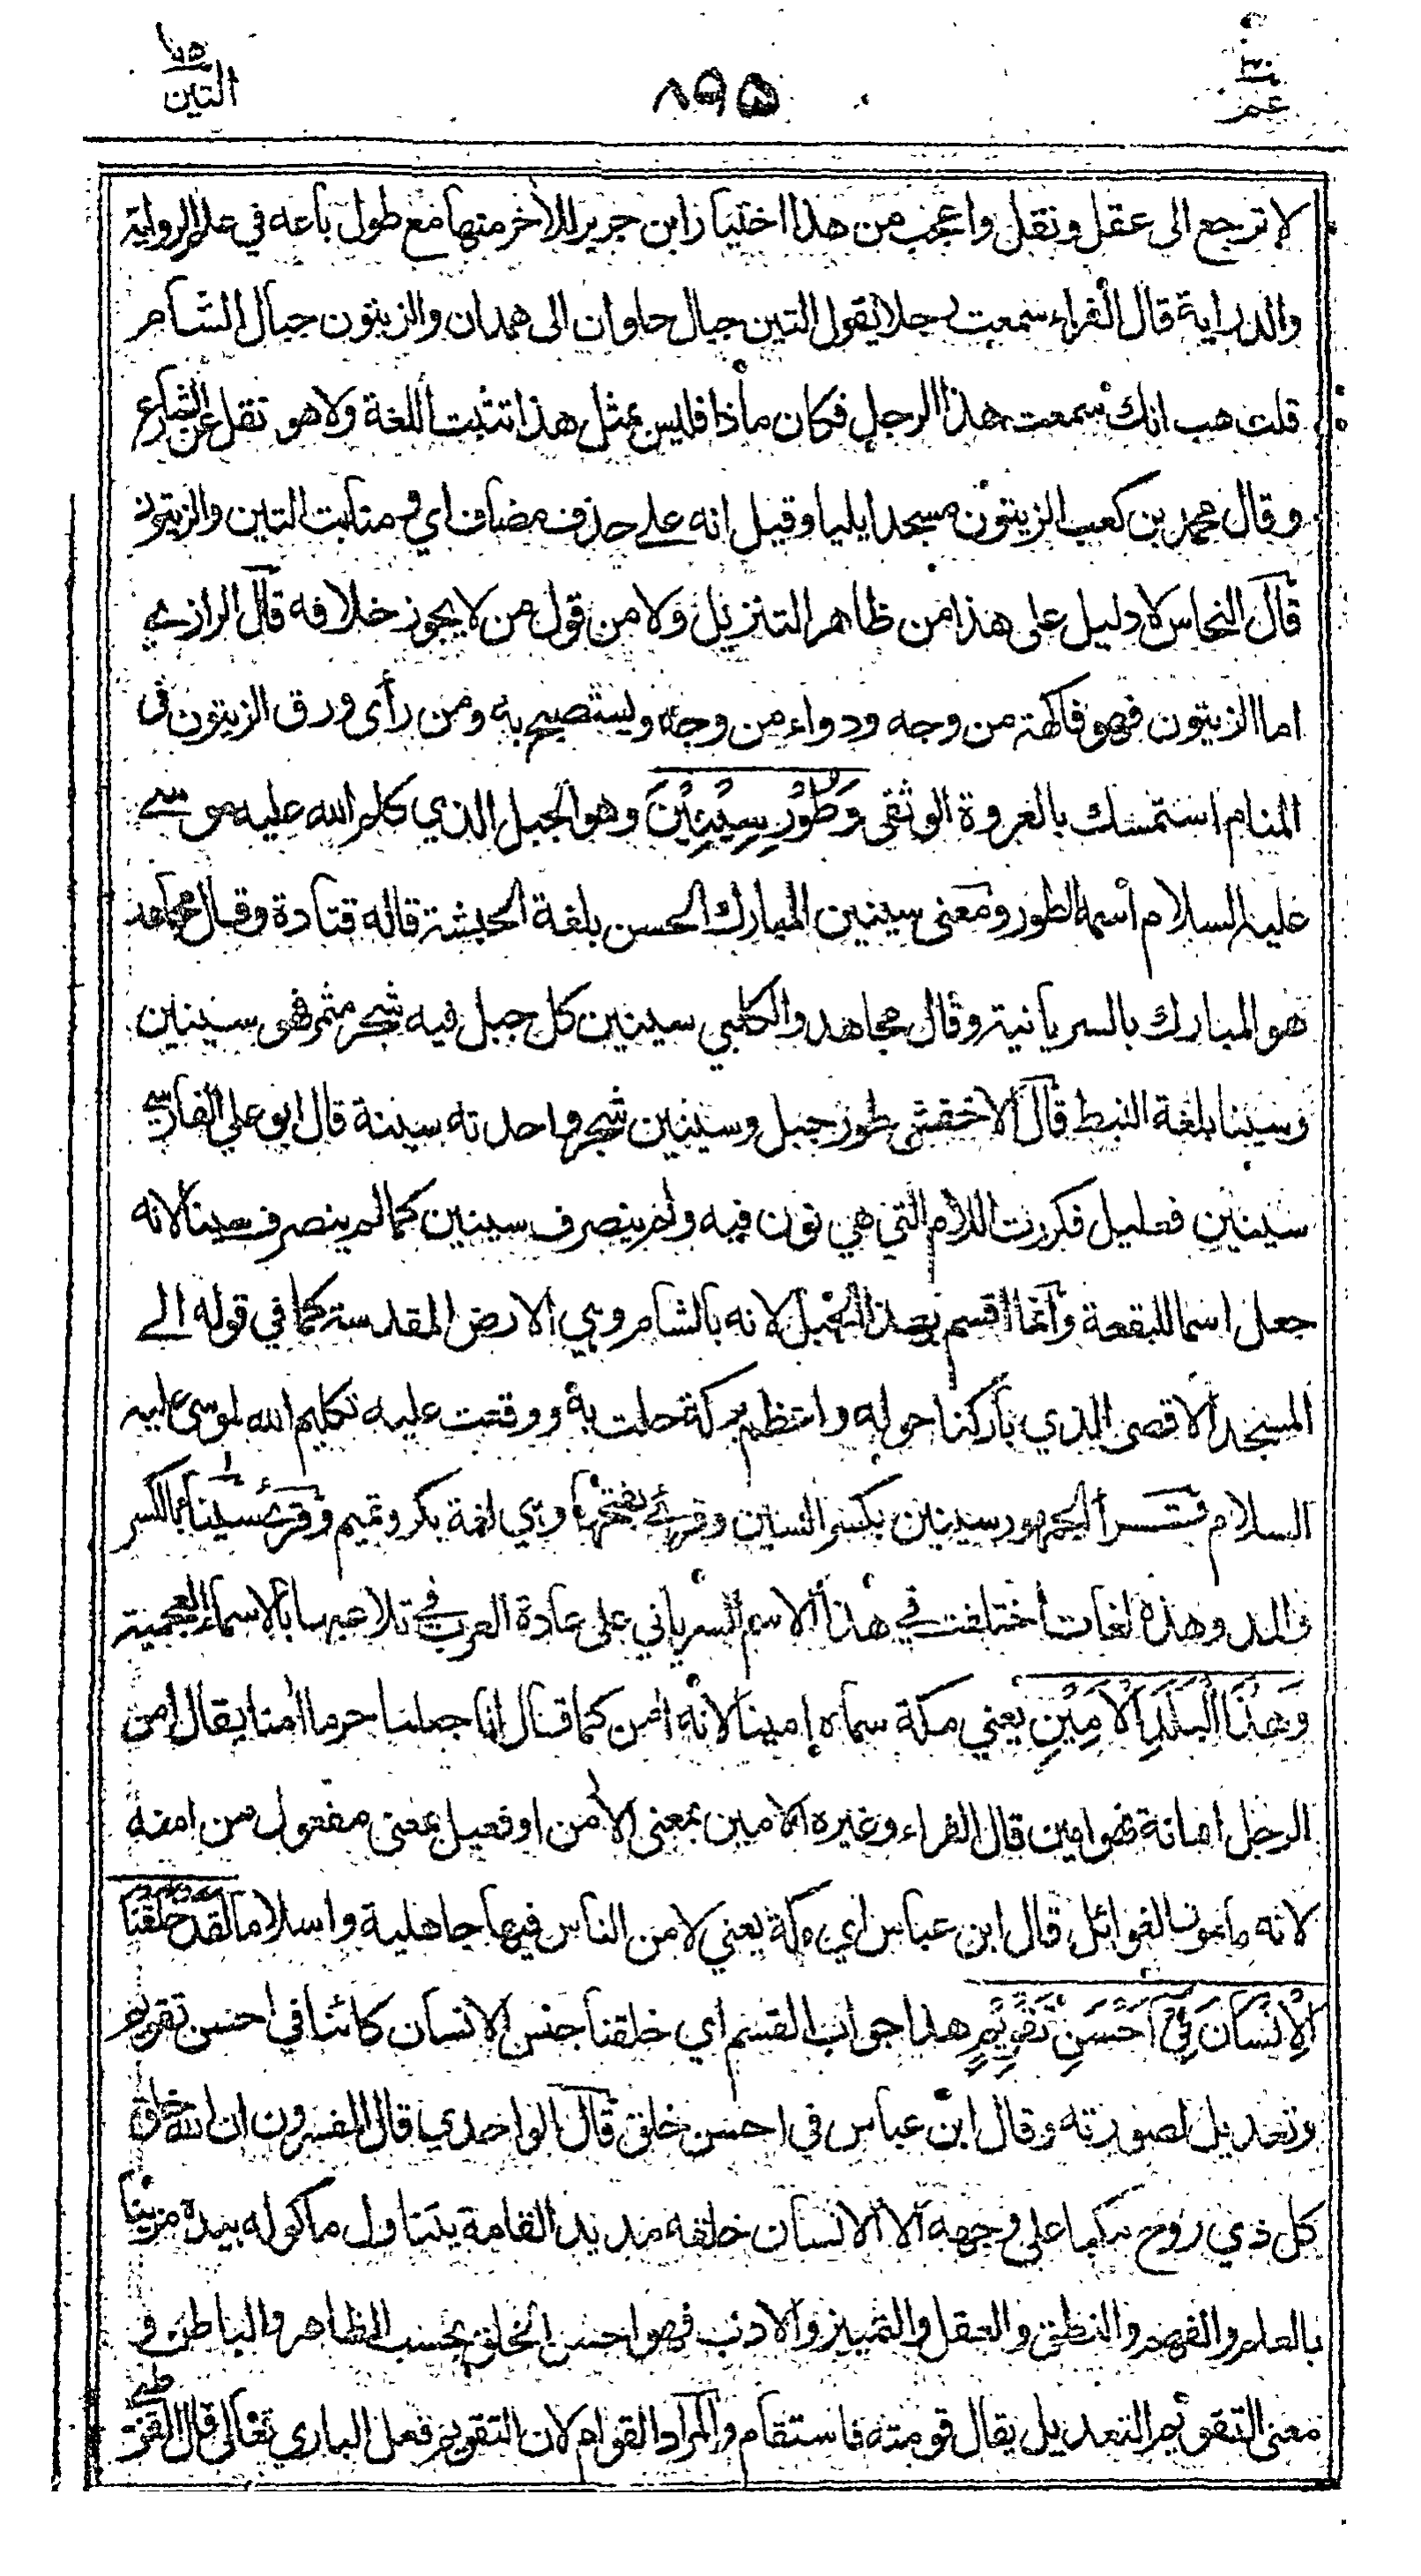 ٣٠
عم
٨٩٥
٩٥
التين
لا ترجع الى عقل ونقل واعجب من هذا اختيار ابن جرير للاخر منها مع طول باعه في علم الرواية
والدراية قال الفراء سمعت رجلا يقول التين جبال حلوان الى همدان والزيتون جبال الشام
قلت هب انك سمعت هذا الرجل فكان ماذا فليس بمثل هذا تثبت اللغة ولا هو نقل عن الشارع
وقال محمد بن كعب الزيتون مسجد ايليا وقيل انه على حذف مضاف اي و منابت التين والزيتون
قال النحاس لا دليل على هذا من ظاهر التنزيل ولا من قول من لا يجوز خلافه قال الرازي
اما الزيتون فهو فاكهة من وجه ودواء من وجه ويستصبح به ومن رأى ورق الزيتون في
المنام استمسك بالعروة الوثقى وَطُوْرِ سِيْنِيْنَ وهو الجبل الذي كلم الله عليه موسى
عليه السلام اسمه الطور ومعنى سينين المبارك الحسن بلغة الحبشة قاله قتادة وقال مجاهد
هو المبارك بالسريانية وقال مجاهد والكلبي سينين كل جبل فيه شجر مثمر فهو سينين
وسينا بلغة النبط قال الاخفش طور جبل وسينين شجر واحدته سينة قال ابو علي الفارسي
سينين فعليل فكررت اللام التي هي نون فيه ولم ينصرف سينين كما لم ينصرف سينا لانه
جعل اسما للبقعة وانما اقسم بهذا الجبل لانه بالشام وهي الارض المقدسة كما في قوله الى
المسجد الاقصى الذي باركنا حوله واعظم بركة حلت به ووقعت عليه تكليم الله لموسى عليه
السلام قرأ الجمهور سينين بكسر السين وقرئ بفتحها وهي لغة بكر وتميم وقرئ سيناء بالكسر
والمد وهذه لغات اختلفت في هذا الاسم السرياني على عادة العرب في تلاعبها بالاسماء العجمية
وَهٰذَا الْبَلَدِ الْاَمِيْنِ يعني مكة سماه امينا لانه امن كما قال انا جعلنا حرما امنا يقال امن
الرجل امانة فهو امين قال الفراء وغيره الامين بمعنى الامن او فعيل بمعنى مفعول من امنه
لانه مامون الغوائل قال ابن عباس اي مكة يعني لامن الناس فيها جاهلية واسلاما لَقَدْ خَلَقْنَا
الْاِنْسَانَ فِيْ اَحْسَنِ تَقْوِيْمٍ هذا جواب القسم اي خلقنا جنس الانسان كائنا في احسن تقويم
وتعديل لصورته وقال ابن عباس في احسن خلق قال الواحدي قال المفسرون ان الله خلق
كل ذي روح مكبا على وجهه الا الانسان خلقه مديد القامة يتناول ماكوله بيده مزينا
بالعلم والفهم والنطق والعقل والتمييز والادب فهو احسن الخلق بحسب الظاهر والباطن و
معنى التقويم التعديل يقال قومته فاستقام والمراد القوام لان التقويم فعل الباري تعالى قال القرطبي